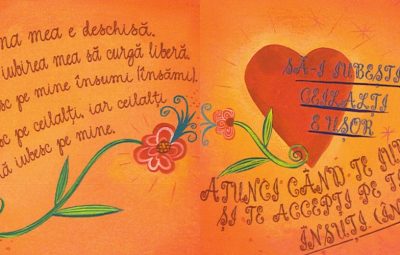 ma mea e deschisă.
iubirea mea să curgă liberă.
sc pe mine însumi (însămi).
sc pe ceilalți, iar ceilalți
ă iubesc pe mine.
SĂ-I IUBEȘTI
CEILALȚI
E UȘOR
ATUNCI CÂND TE IUB
ȘI TE ACCEPȚI PE T
ÎNSUȚI (ÎN